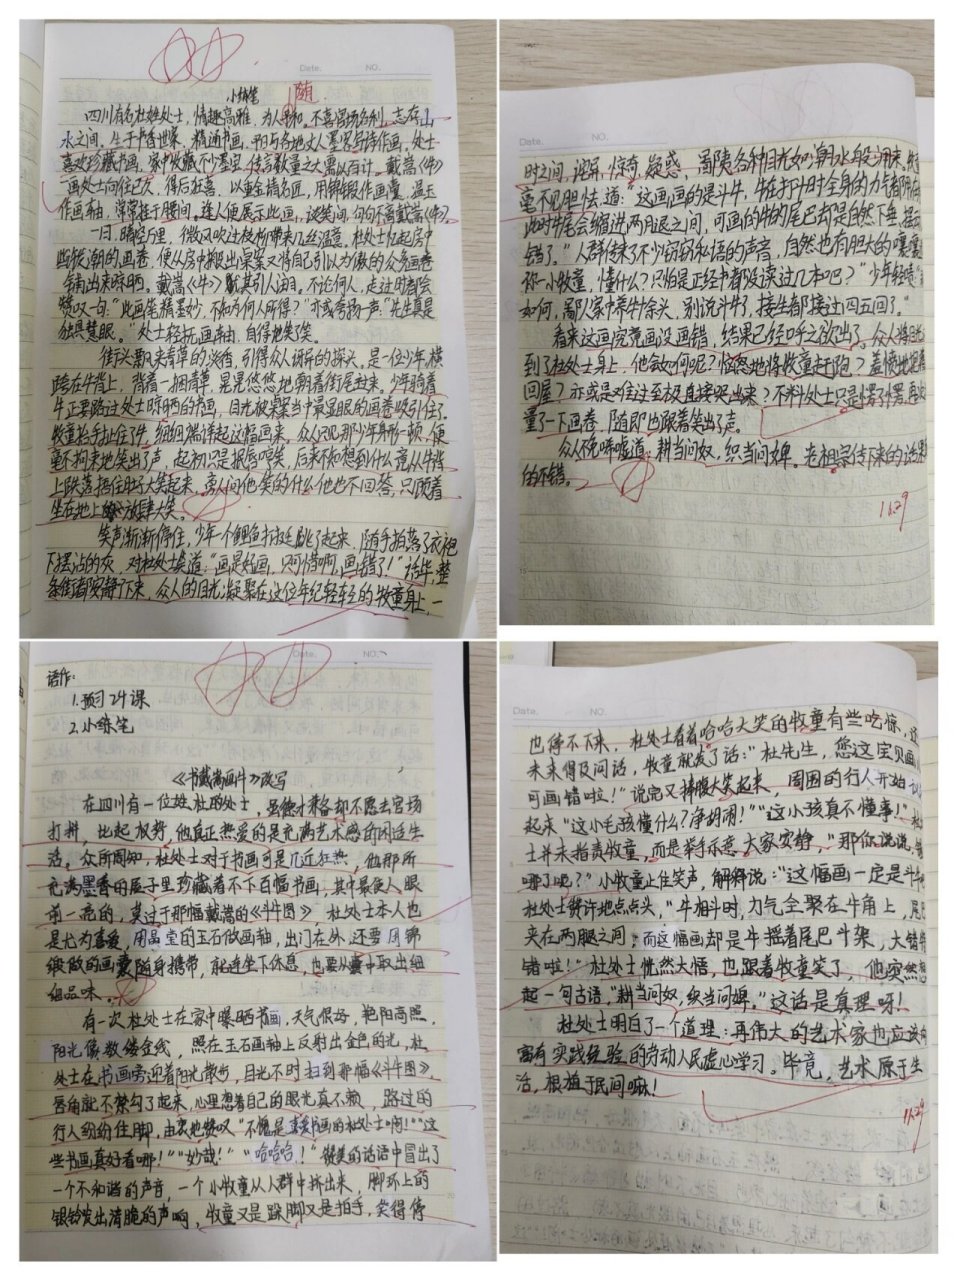 Date. NO.
小练笔
随
四川有名杜姓处士，情趣高雅，为人随和。不喜官场名利，志存山
水之间。生于书香世家，精通书画，平日与各地文人墨客写诗作画。处士
喜欢珍藏书画，家中收藏不少墨宝，传言数量之大需以百计。戴嵩《牛》
一画处士向往已久，得后狂喜，以重金搞名匠，用锦缎作画囊，温玉
作画轴，常常挂于腰间。逢人便展示此画，谈笑间，句句不离戴嵩《牛》。
一日，晴空万里，微风吹过枝柳带来几丝温意。杜处士忆起房中
些许潮的画卷，便从房中搬出桌案又将自己引以为傲的众多画卷
铺出来晾晒。戴嵩《牛》最其引人注目。不论何人，走过时都会
赞叹一句：“此画笔精墨妙，不知为何人所得？”亦或夸扬一声：“先生真是
独具慧眼。”处士轻抚画轴，自得地笑了笑。
街头飘来青草的淡香，引得众人讶异的探头。是一位少年，横
跨在牛背上，背着一捆青草，晃晃悠悠地朝着街尾赶来。少年骑着
牛正要路过处士晾晒的书画，目光被桌案当中最显眼的画卷吸引住了。
牧童抬手扯住了牛，细细端详起这幅画来，众人只见那少年身形一顿，便
毫不拘束地笑出了声，起初只是抿唇哼笑，后来不知想到什么竟从牛背
上跌落捂住肚子大笑起来，旁人问他笑的什么他也不回答，只顾着
坐在地上放肆大笑。
笑声渐渐停住，少年一个鲤鱼打挺跳了起来，随手拍落了衣袍
下摆沾的灰，对杜处士笑道：“画是好画，只可惜啊，画错了！”话毕，整
条街都安静下来，众人的目光凝聚在这位年纪轻轻的牧童身上，一
Date. NO.
时之间，诧异，惊奇，疑惑，鄙夷各种目光如潮水般涌来。牧童
毫不胆怯道：“这画画的是斗牛，牛在打斗时全身的力气都用在角
此时牛尾会缩进两月退之间，可画的牛的尾巴却是自然下垂，摇
错了。”人群传来不少窃窃私语的声音，自然也有胆大的嚷嚷
你一小牧童，懂什么？只怕是正经牛都没读过几本吧？”少年轻
如何，鄙人家中养牛余头，别说斗牛了，接生都接过四五回了。”
看来这画究竟画没画错，结果已经呼之欲出了，众人将目光
到了杜处士身上，他会如何呢？恼怒地将牧童赶跑？羞愤地抱着
回屋？亦或是难过至极直接哭出来？不料处士只是愣了愣，再次
量了一下画卷，随即也跟着笑出了声。
众人不免唏嘘道：耕当问奴，织当问婢。老祖宗传下来的话果
的不错。
11.29
Date. NO.
语作：
1.预习24课
2.小练笔
《书戴嵩画牛》改写
在四川有一位姓杜的处士，虽德才兼备却不愿去官场
打拼，比起权势，他真正热爱的是充满艺术感的闲适生
活。众所周知，杜处士对于书画可是几近狂热，他那所
充满墨香的屋子里珍藏着不下百幅书画，其中最使人眼
前一亮的，莫过于那幅戴嵩的《斗牛图》，杜处士本人也
是尤为喜爱，用晶莹的玉石做画轴，出门在外，还要用锦
缎做的画囊随身携带，就连坐下休息，也要从囊中取出细
细品味。
有一次，杜处士在家中曝晒书画，天气很好，艳阳高照，
阳光像数缕金线，照在玉石画轴上反射出金色的光，杜
处士在书画旁迎着阳光散步，目光不时扫到那幅《斗牛图》
唇角就不禁勾了起来，心里想着自己的眼光真不赖，路过的
行人纷纷住脚，由衷地赞叹“不愧是喜爱书画的杜处士啊！”“这
些书画真好看哪！”“妙哉！”“哈哈哈！”赞美的话语中冒出了
一个不和谐的声音，一个小牧童从人群中挤出来，脚环上的
银铃发出清脆的声响，牧童又是跺脚又是拍手，笑得停
Date. NO.
也停不下来，杜处士看着哈哈大笑的牧童有些吃惊，还
未来得及问话，牧童就发了话：“杜先生，您这宝贝画
可画错啦！”说完又捧腹大笑起来，周围的行人开始议
起来“这小毛孩懂什么？净胡闹！”“这小孩真不懂事！”杜
士并未指责牧童，而是举手示意大家安静，“那你说说，错
哪了呢？”小牧童止住笑声，解释说：“这幅画一定是斗牛
杜处士赞许地点点头，“牛相斗时，力气全聚在牛角上，尾巴
夹在两腿之间，而这幅画却是牛摇着尾巴斗架，大错特
错啦！”杜处士恍然大悟，也跟着牧童笑了，他突然想
起一句古语，“耕当问奴，织当问婢。”这话是真理呀！
杜处士明白了一个道理：再伟大的艺术家也应该向
富有实践经验的劳动人民虚心学习。毕竟，艺术原于生
活，根植于民间嘛！
11.29